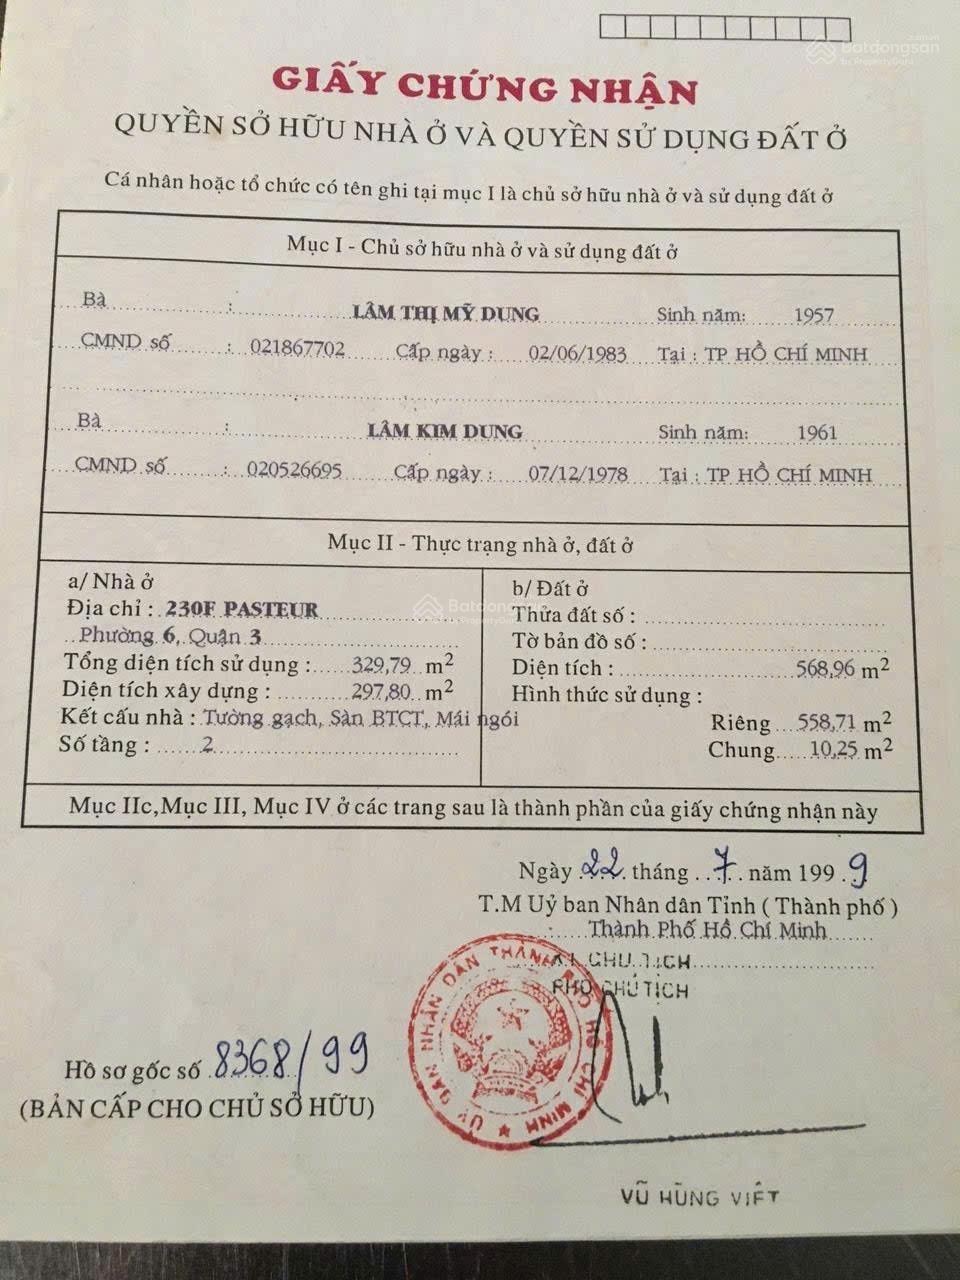 Batdongsan
by PropertyGuru
GIẤY CHỨNG NHẬN
QUYỀN SỞ HỮU NHÀ Ở VÀ QUYỀN SỬ DỤNG ĐẤT Ở
Cá nhân hoặc tổ chức có tên ghi tại mục I là chủ sở hữu nhà ở và sử dụng đất ở
Mục I - Chủ sở hữu nhà ở và sử dụng đất ở
Bà : LÂM THỊ MỸ DUNG Sinh năm: 1957
CMND số : 021867702 Cấp ngày : 02/06/1983 Tại : TP HỒ CHÍ MINH
Bà : LÂM KIM DUNG Sinh năm: 1961
CMND số : 020526695 Cấp ngày : 07/12/1978 Tại : TP HỒ CHÍ MINH
Mục II - Thực trạng nhà ở, đất ở
a/ Nhà ở
Địa chỉ : 230F PASTEUR
Phường 6, Quận 3
Tổng diện tích sử dụng : 329,79 m2
Diện tích xây dựng : 297,80 m2
Kết cấu nhà : Tường gạch, Sàn BTCT, Mái ngói
Số tầng : 2
b/ Đất ở
Thửa đất số :
Tờ bản đồ số :
Diện tích : 568,96 m2
Hình thức sử dụng :
Riêng 558,71 m2
Chung 10,25 m2
Batdongsan
by PropertyGuru
Mục IIc,Mục III, Mục IV ở các trang sau là thành phần của giấy chứng nhận này
Ngày 22 tháng 7 năm 1999
T.M Uỷ ban Nhân dân Tỉnh ( Thành phố )
: Thành Phố Hồ Chí Minh
KT CHỦ TỊCH
PHÓ CHỦ TỊCH
ỦY BAN NHÂN DÂN THÀNH PHỐ HỒ CHÍ MINH
Hồ sơ gốc số 8368/99
(BẢN CẤP CHO CHỦ SỞ HỮU)
VŨ HÙNG VIỆT